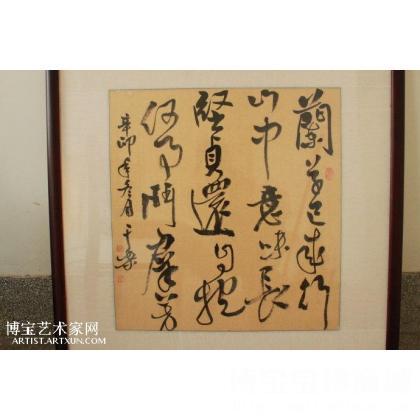 蘭草已成行
山中意味長
堅貞還自抱
何事鬥羣芳
辛卯年冬月
博宝艺术家网
ARTIST.ARTXUN.COM